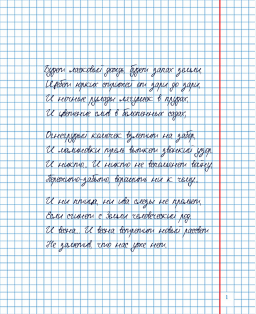 Будет ласковый дождь, будет запах земли,
Щебет юрких стрижей от зари до зари,
И ночные рулады лягушек в прудах,
И цветение слив в белопенных садах.
Огнегрудый комочек взлетит на забор,
И малиновки трель выткет звонкий узор.
И никто, И никто не вспомянет войну
Пережито-забыто, ворошить ни к чему.
И ни птица, ни ива слезы не прольёт,
Если сгинет с Земли человеческий род
И весна... И весна встретит новый рассвет
Не заметив, что нас уже нет.
1